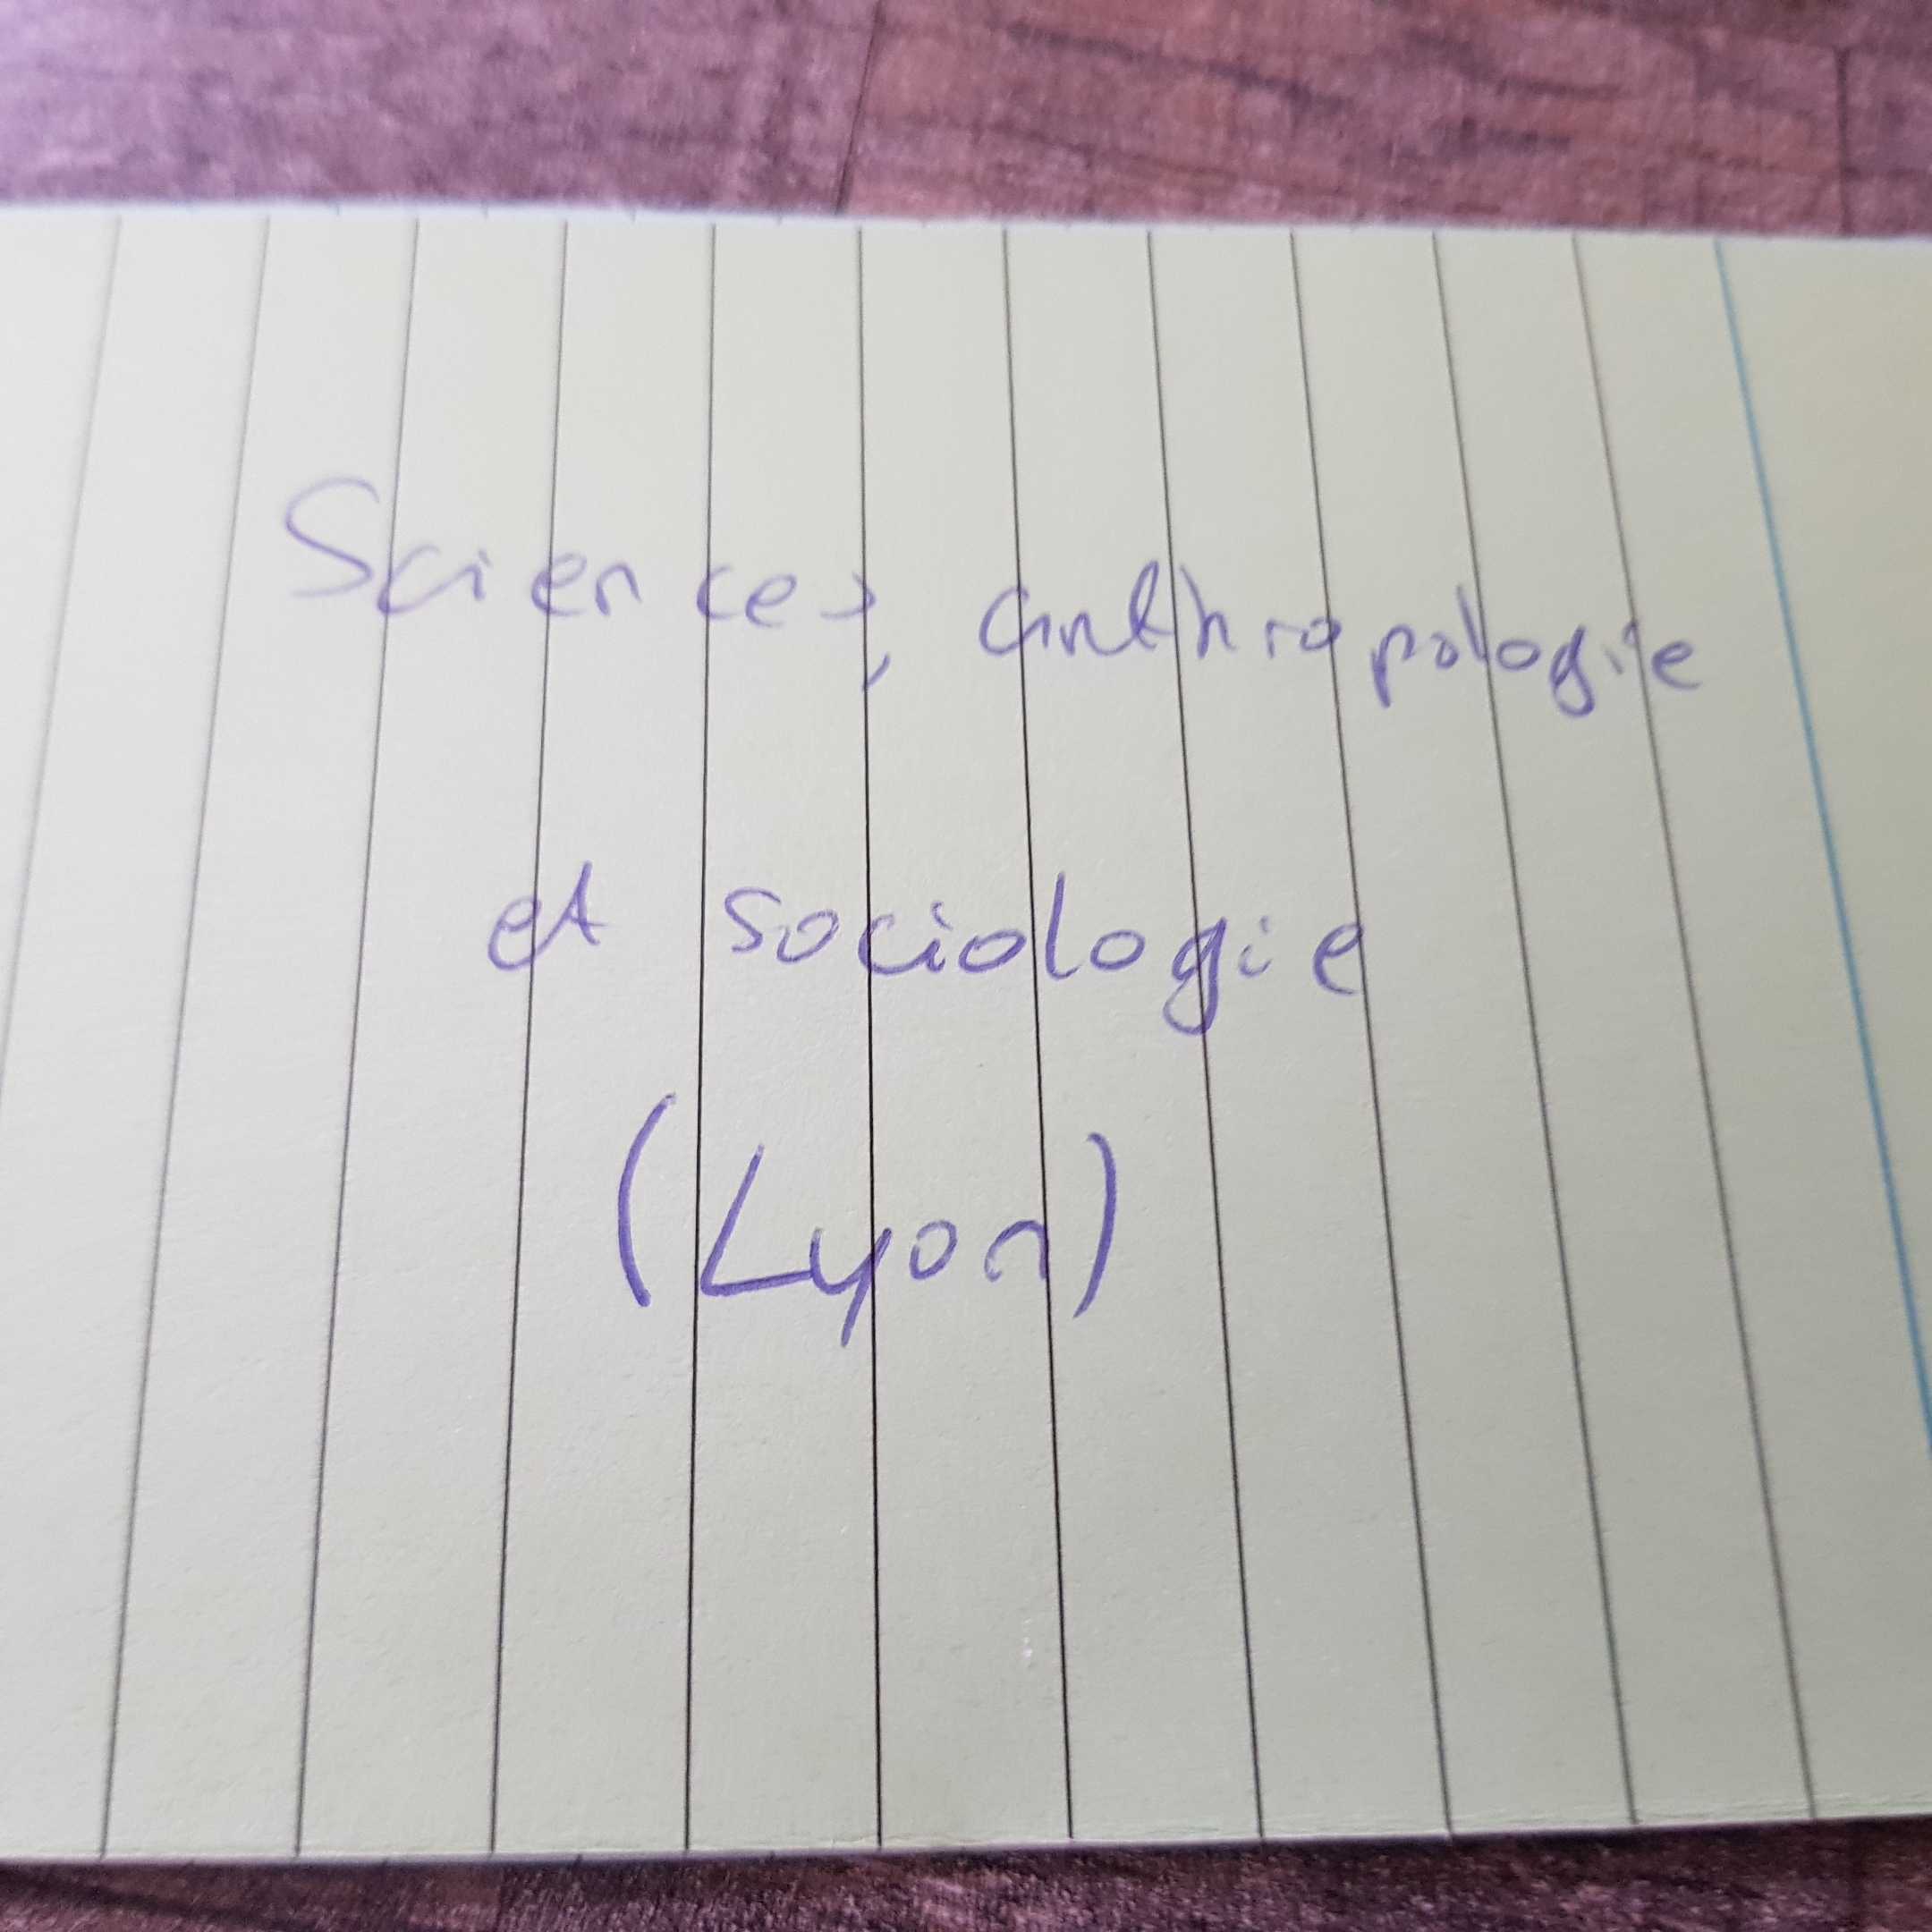 Sciences, anthropologie
et sociologie
(Lyon)